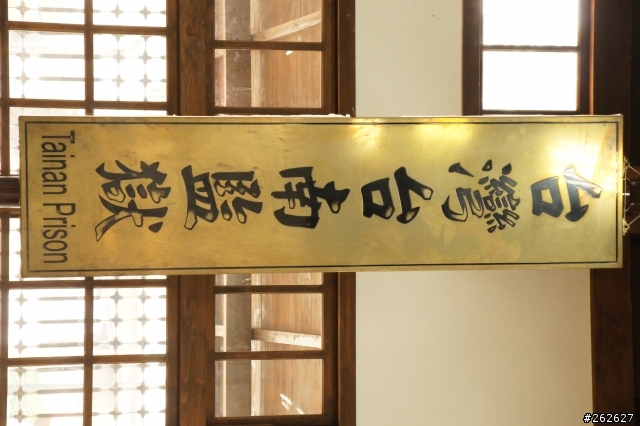 台灣台南監獄
Tainan Prison
#262627